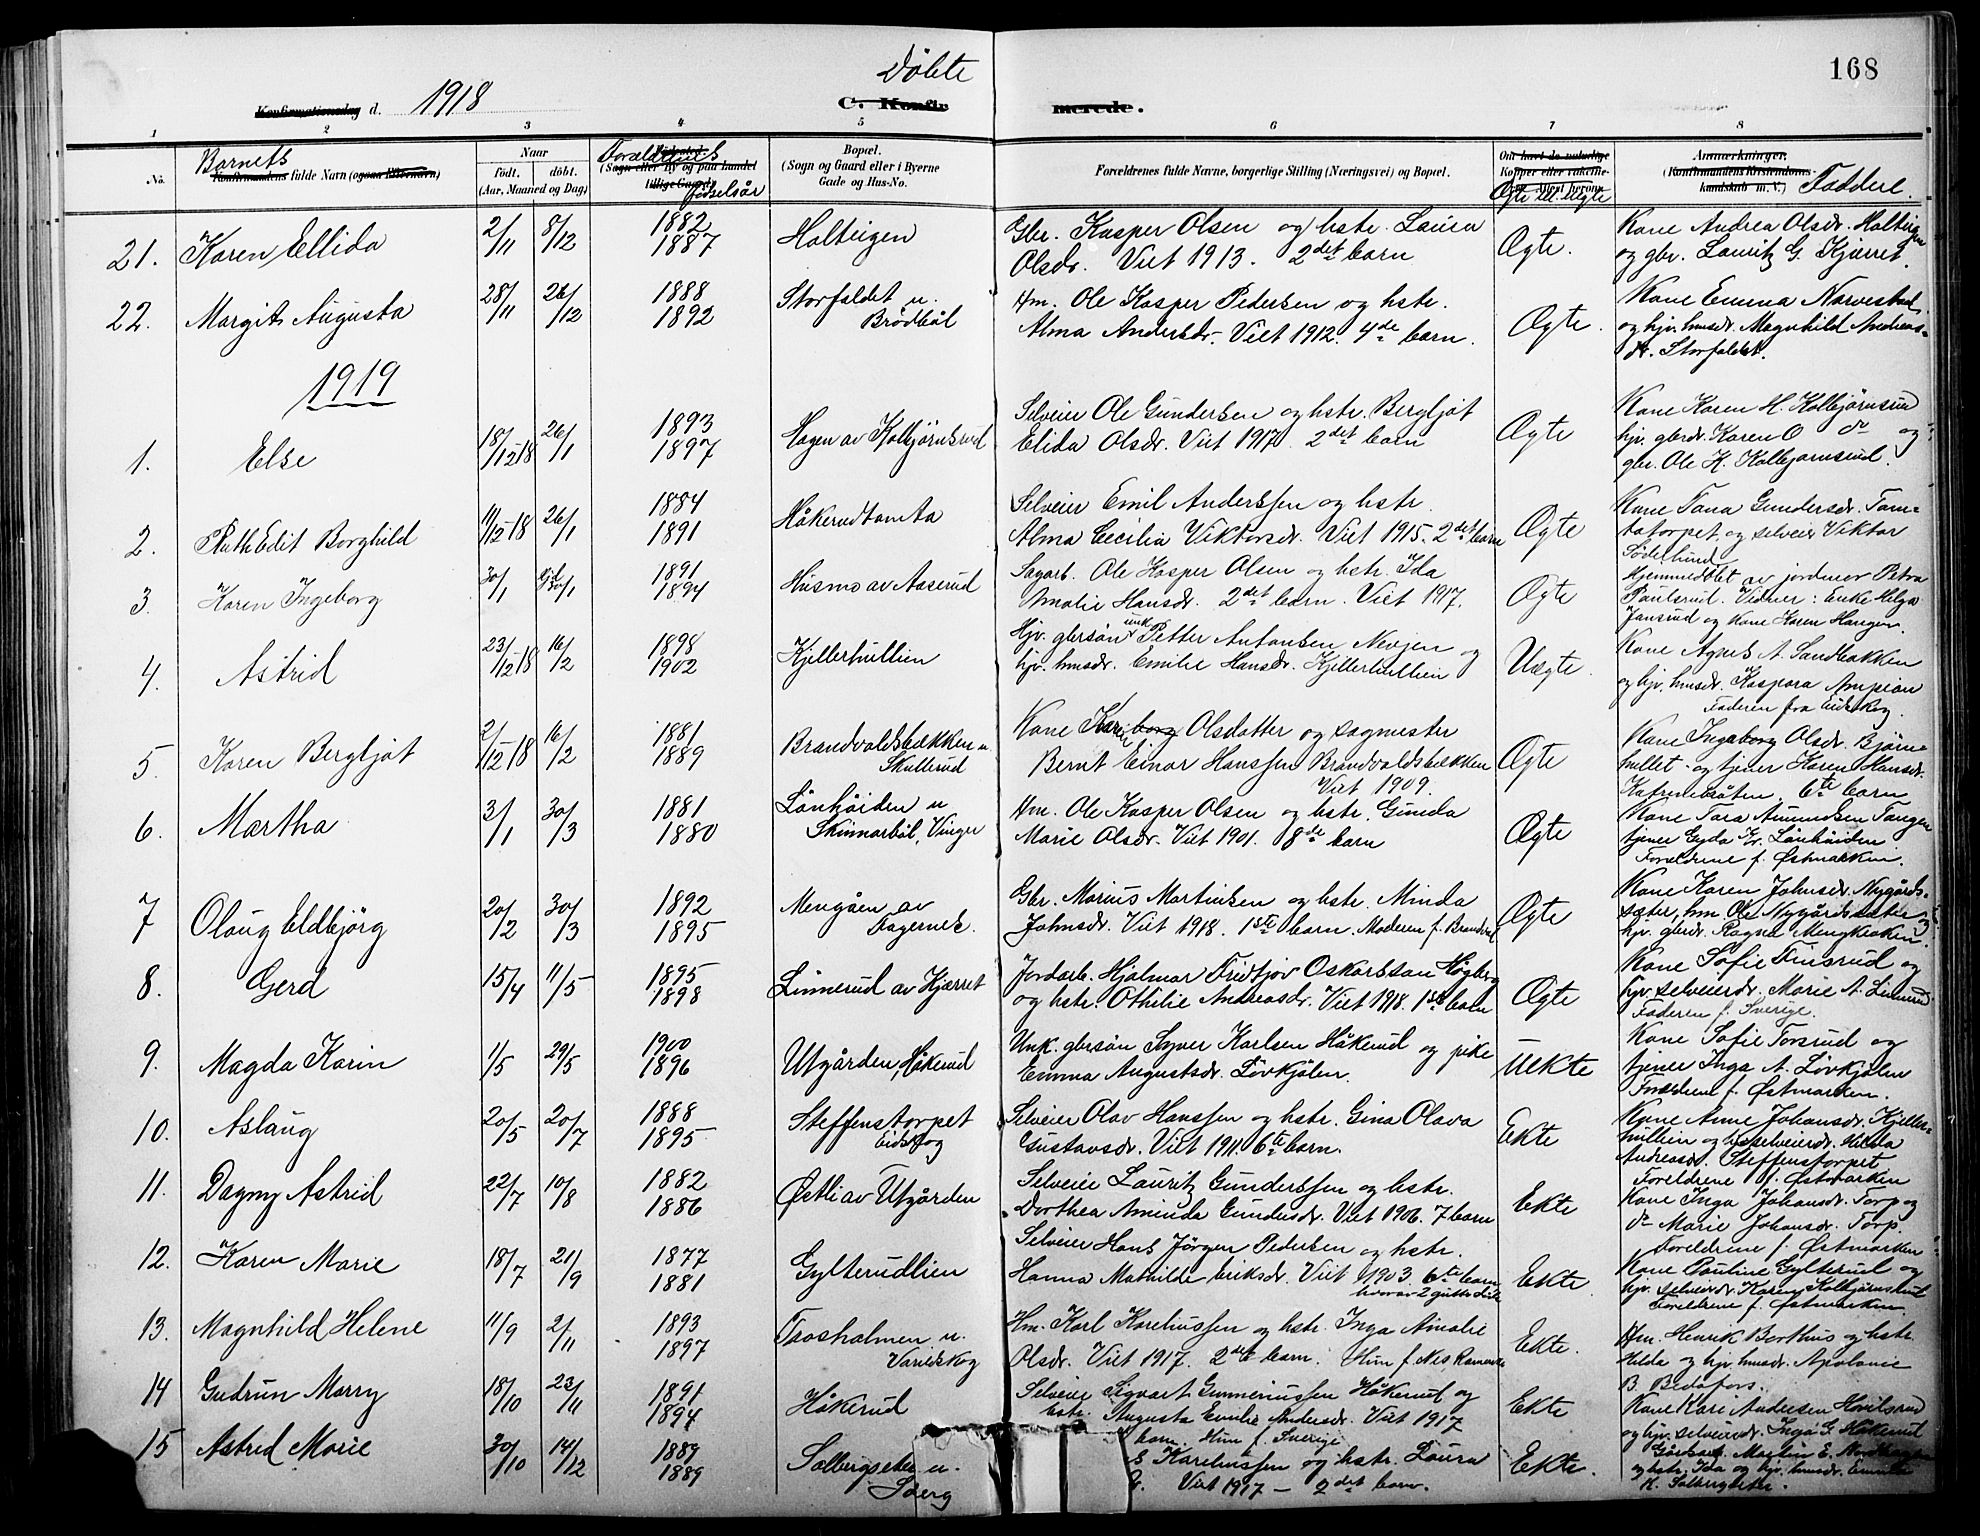 168
Döbte
1918
Konfirmationsdag d.
C. Konfirmerede.
1 2 3 4 5 6 7 8
No.
Barnets
Konfirmandens fulde Navn (ogsaa Efternavn)
Naar
født. døbt.
(Aar, Maaned og Dag)
Forældrenes
Fødselsår
Bopæl.
(Sogn og Gaard eller i Byerne
Gade og Hus-No.
Forældrenes fulde Navne, borgerlige Stilling (Næringsvei) og Bopæl.
Ægte el. uægte
Anmærkninger.
(Konfirmandens Kristendoms-
kundskab m. V.)
Faddere.
21. Karen Ellida 2/11 8/12 1882 1887 Holteigen
Gbr. Kasper Olsen og hstr. Laura
Olsdr. Viet 1913. 2det barn
Ægte.
Kone Andrea Olsdr. Holteigen
og gbr. Lauritz G. Kjærret.
22. Margit Augusta 28/11 26/12 1888 1892 Storfaldet u. Brødbøl
Hm. Ole Kasper Pedersen og hstr.
Alma Andersdr. Viet 1912. 4de barn.
Ægte.
Kone Emma Narvestad
og hjv. hmsdr. Magnhild Andreas-
dr. Storfaldet.
1919
1. Else 18/12-18 26/1 1893 1897 Hagen av Kolbjørnsrud
Selveier Ole Gundersen og hstr. Bergljot
Elida Olsdr. Viet 1917. 2det barn
Ægte
Kone Karen H. Kolbjørnsrud
hjv. gbrdr. Karen O do og
gbr. Ole K. Kolbjørnsrud.
2. Ruth Edit Borghild 11/12-18 26/1 1884 1891 Håkerudtomta
Selveier Emil Anderssen og hstr.
Alma Cecilia Viktorsdr. Viet 1915. 2det barn
Ægte
Kone Tana Gundersdr. Tom-
tatorpet, og selveier Viktor
Söderlund
3. Karen Ingeborg 30/1 30/1 1891 1894 Husmo av Aaserud
Sagarb. Ole Kasper Olsen og hstr. Ida
Amalie Hansdr. 2det barn. Viet 1917.
Ægte
Hjemmedøbt av jordmor Petra
Paulsrud. Vidner: Enke Helga
Jansrud og kone Karen Haugen.
4. Astrid 23/12-18 16/2 1898 1902 Kjellerhullien
Hjv. gbrsøn unk Petter Antonsen Nevjen og
hjv. hmsdr. Emilie Hansdr. Kjellerhullien
Uægte.
Kone Agnes A. Sandbakken
og hjv. hmsdr. Kaspara Ampian
Faderen fra Eidskog.
5. Karen Bergljot 2/12-18 16/2 1881 1889 Brandvoldsbækken u. Skullerud
Kone Karen Olsdatter og sagmester
Bernt Einar Hanssen Brandvoldsbækken
Viet 1909.
Ægte
Kone Ingeborg Olsdr. Bjørne-
hullet og tjener Karen Hansdr.
6te barn
6. Martha 3/1 30/3 1881 1880 Lönhöiden u. Skinnarböl, Vinger
Hm. Ole Kasper Olsen og hstr. Gunda
Marie Olsdr. Viet 1901. 8de barn
Ægte
Kone Tora Amundsen Tangen
tjener Gyda Kr. Lønhøiden
Foreldrene f. Østmarken.
7 Olaug Eldbjörg 20/2 30/3 1892 1895 Mengåen av Fagernes.
Gbr. Marius Martinsen og hstr. Minda
Johnsdr. Viet 1918. 1ste barn. Moderen f. Brandval
Ægte
Kone Karen Johnsdr. Nygårds-
sæter, hm Ole Nygårdssæter og
hjv. gbrdr. Ragna Mengkroken
8. Gerd 15/4 11/5 1895 1898 Linnerud av Kjærret
Jordarb. Hjalmar Fridtjov Oskarsson Høgberg
og hstr. Othilie Andreasdr. Viet 1918. 1ste barn
Ægte
Kone Sofie Finsrud og
hjv. selveierdr. Marie A. Linnerud
Faderen f. Sverige.
9. Magda Karin 1/5 29/5 1900 1896 Utgården, Håkerud
Unk. gbrsøn Syver Karlsen Håkerud og pike
Emma Augustsdr. Løvkjølen.
Uekte
Kone Sofie Torsrud og
tjener Inga A. Løvkjølen
Foreldrene f. Østmarken.
10. Aslaug 20/5 20/7 1888 1895 Steffenstorpet Eidskog
Selveier Olav Hanssen og hstr. Gina Olava
Gustavsdr. Viet 1911. 6te barn.
Ekte
Kone Anne Johansdr. Kjeller-
hullien og selveierdr. Hilda
Andreasdr. Steffenstorpet
Foreldrene f. Østmarken
11. Dagny Astrid 22/7 10/8 1882 1886 Østli av Utgården
Selveier Lauritz Gunderssen og hstr.
Dorthea Aminda Gundersdr. Viet 1906. 7 barn
Ekte
Kone Inga Johansdr. Torp og
do Marie Johansdr. Torp.
Foreldrene f. Østmarken
12. Karen Marie 18/7 21/9 1877 1881 Gylterudlien
Selveier Hans Jørgen Pedersen og hstr.
Hanna Mathilde Eriksdr. Viet 1903. 6te barn
hvorav 2 gutter döde
Ekte.
Kone Pauline Gylterud og
hjv. selveierdr. Karen Kolbjørnsrud
Foreldrene f. Østmarken
13. Magnhild Helene 11/9 2/11 1893 1897 Taasholmen u. Varildskog
Hm. Karl Kareliussen og hstr. Inga Amalie
Olsdr. Viet 1917. 2det barn. Hun f. Nes Romerike
Ekte.
Hm. Henrik Berthus og hstr.
Hilda og hjv. hmsdr. Apolonie
B. Bedafors.
14 Gudrun Marry 18/10 23/11 1891 1894 Håkerud
Selveier Sigvart Gunneriussen Håkerud og
hstr. Augusta Emilie Andersdr. Viet 1917
barn. Hun f. Sverige
Ekte
Kone Kari Andersen Hovilsrud
og hjv. selveierdr. Inga G. Håkerud
15 Astrid Marie 30/10 14/12 1889 1889 Solbergseter u. Soberg
Kareliussen og hstr. Laura
Viet 1917 — 2det barn.
Ekte.
Gårdbest. Martin E.
og hstr. Ida og hjv. hmsdr. Emma
K. Solbergseter.